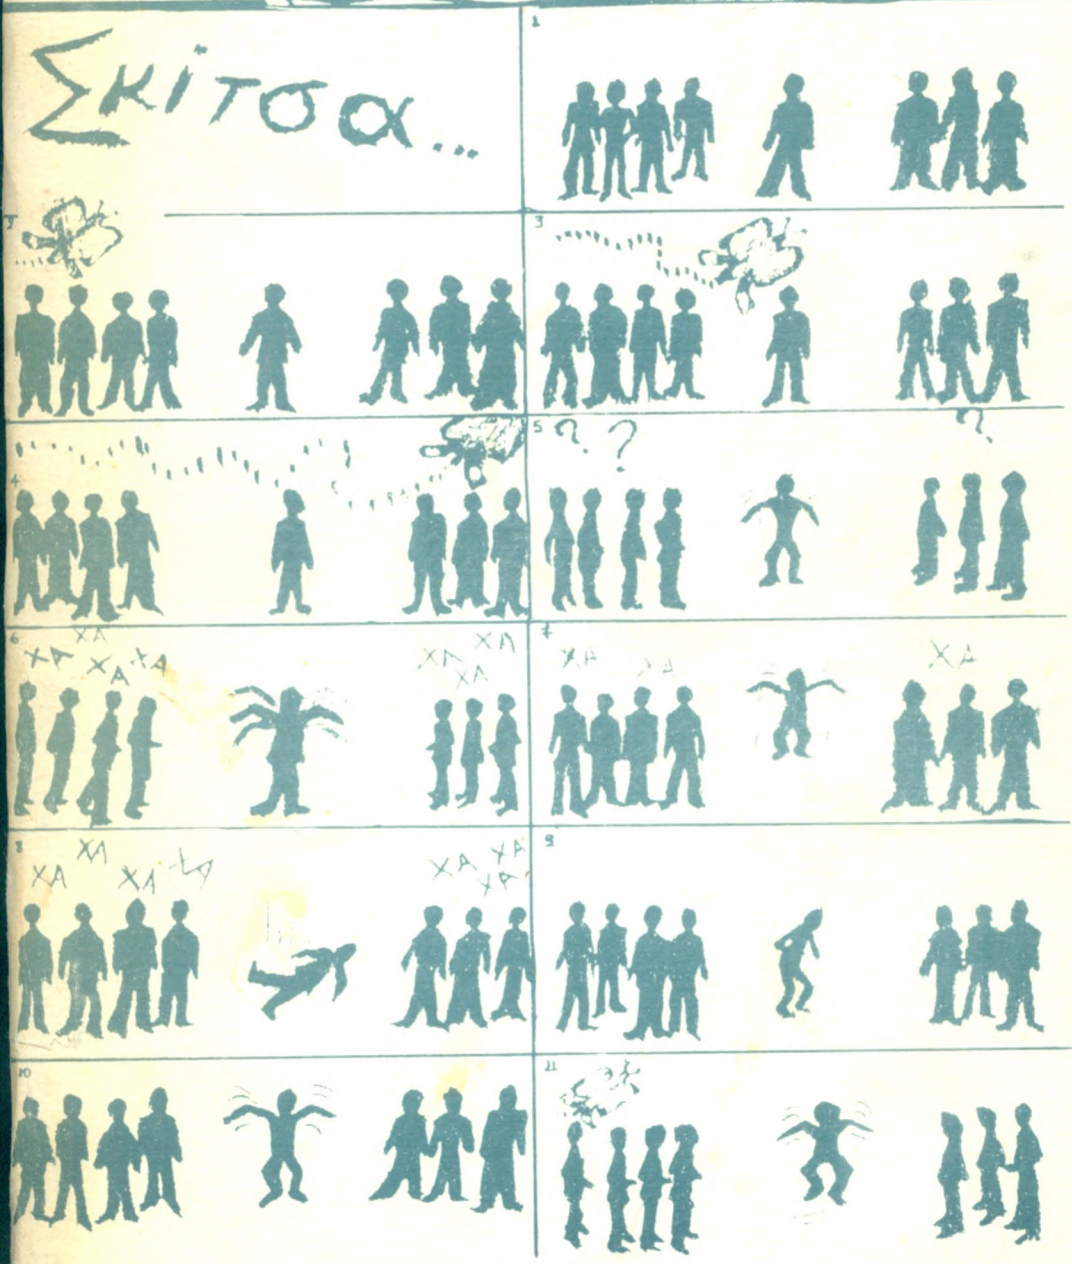 Σκίτσα...
1
2
3
4
5
? ?
?
6
ΧΑ
ΧΑ ΧΑ ΧΑ
ΧΑ
ΧΑ ΧΑ
7
ΧΑ ΧΑ
ΧΑ
8
ΧΑ
ΧΑ ΧΑ ΧΑ
ΧΑ ΧΑ
ΧΑ
9
10
11